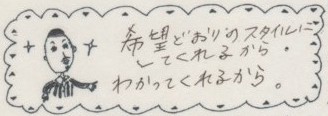 希望どおりのスタイルに
してくれるから
わかってくれるから。